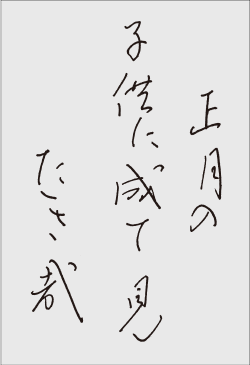 正月の
子供に成て見
たき哉